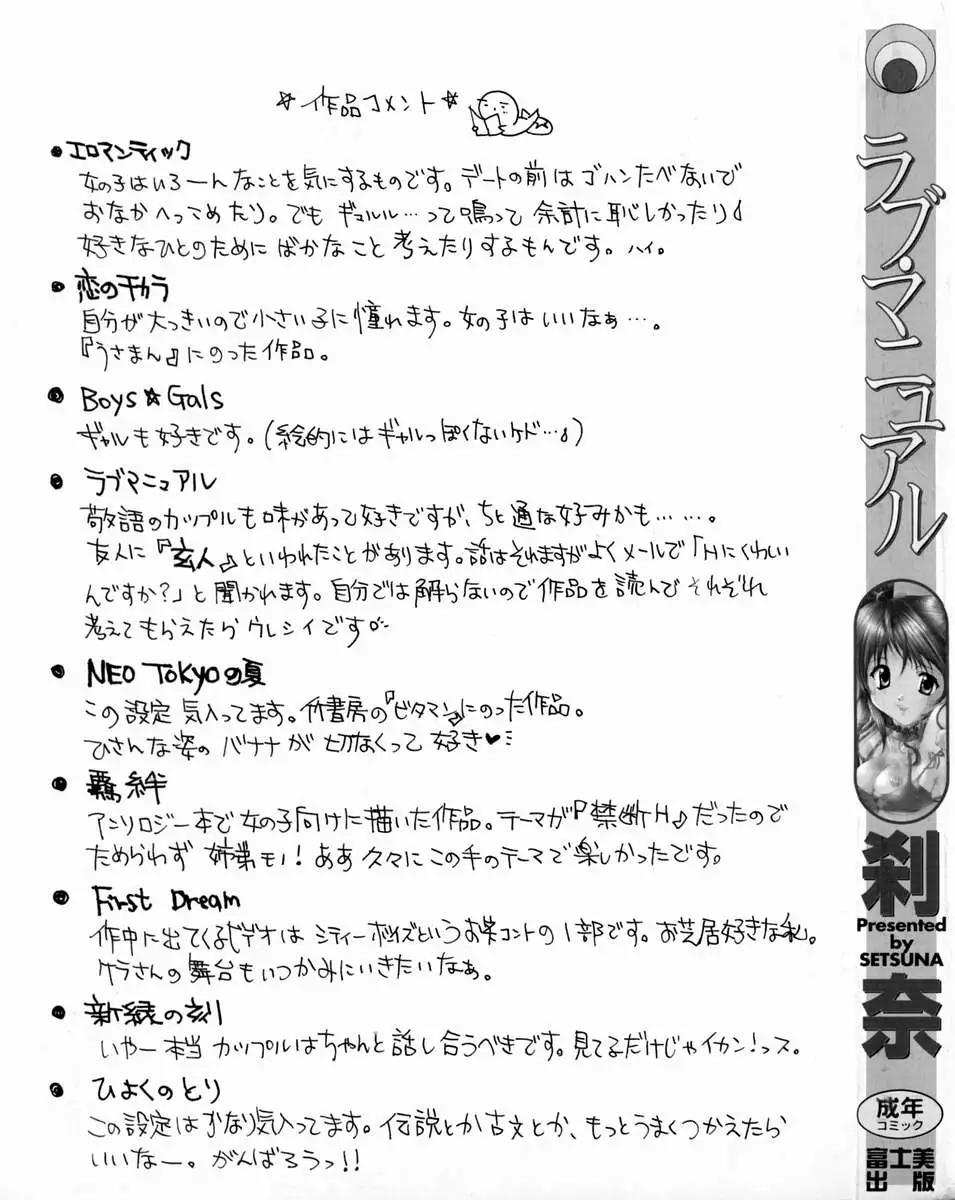 ☆作品コメント☆
●エロマンティック
女の子はいろーんなことを気にするものです。デートの前はゴハンたべないで
おなかへっこめたり。でも ギュルル…って鳴って 余計に恥しかったり♩
好きなひとのために ばかなこと 考えたりするもんです。ハイ。
●恋のチカラ
自分が大っきいので小さい子に憧れます。女の子はいいなぁ…。
『うさまん』にのった作品。
●Boys☆Gals
ギャルも好きです。(絵的にはギャルっぽくないケド…♩)
●ラブマニュアル
敬語のカップルも味があって好きですが、ちと通な好みかも……。
友人に『玄人』といわれたことがあります。話はそれますがよくメールで「Hにくわしい
んですか?」と聞かれます。自分では解らないので作品を読んで それぞれ
考えてもらえたら ウレシイです
●NEO TOKYOの夏
この設定 気入ってます。竹書房の『ビタマン』にのった作品。
ひさんな姿の バナナが 切なくって 好き♥
●羈絆
アンソロジー本で女の子向けに描いた作品。テーマが『禁断H』だったので
ためらわず 姉弟モノ!ああ 久々に この手のテーマで楽しかったです。
●First Dream
作中に出てくるビデオは シティーボーイズというお笑コントの1部です。お芝居好きな私。
ケラさんの舞台もいつかみにいきたいなぁ。
●新緑の刻
いやー本当 カップルはちゃんと話し合うべきです。見てるだけじゃイカン!っス。
●ひよくのとり
この設定はかなり気入ってます。伝説とか古文とか、もっとうまくつかえたら
いいなー。がんばろうっ!!
ラブ・マニュアル
刹奈
Presented
by
SETSUNA
成年
コミック
富士美
出版